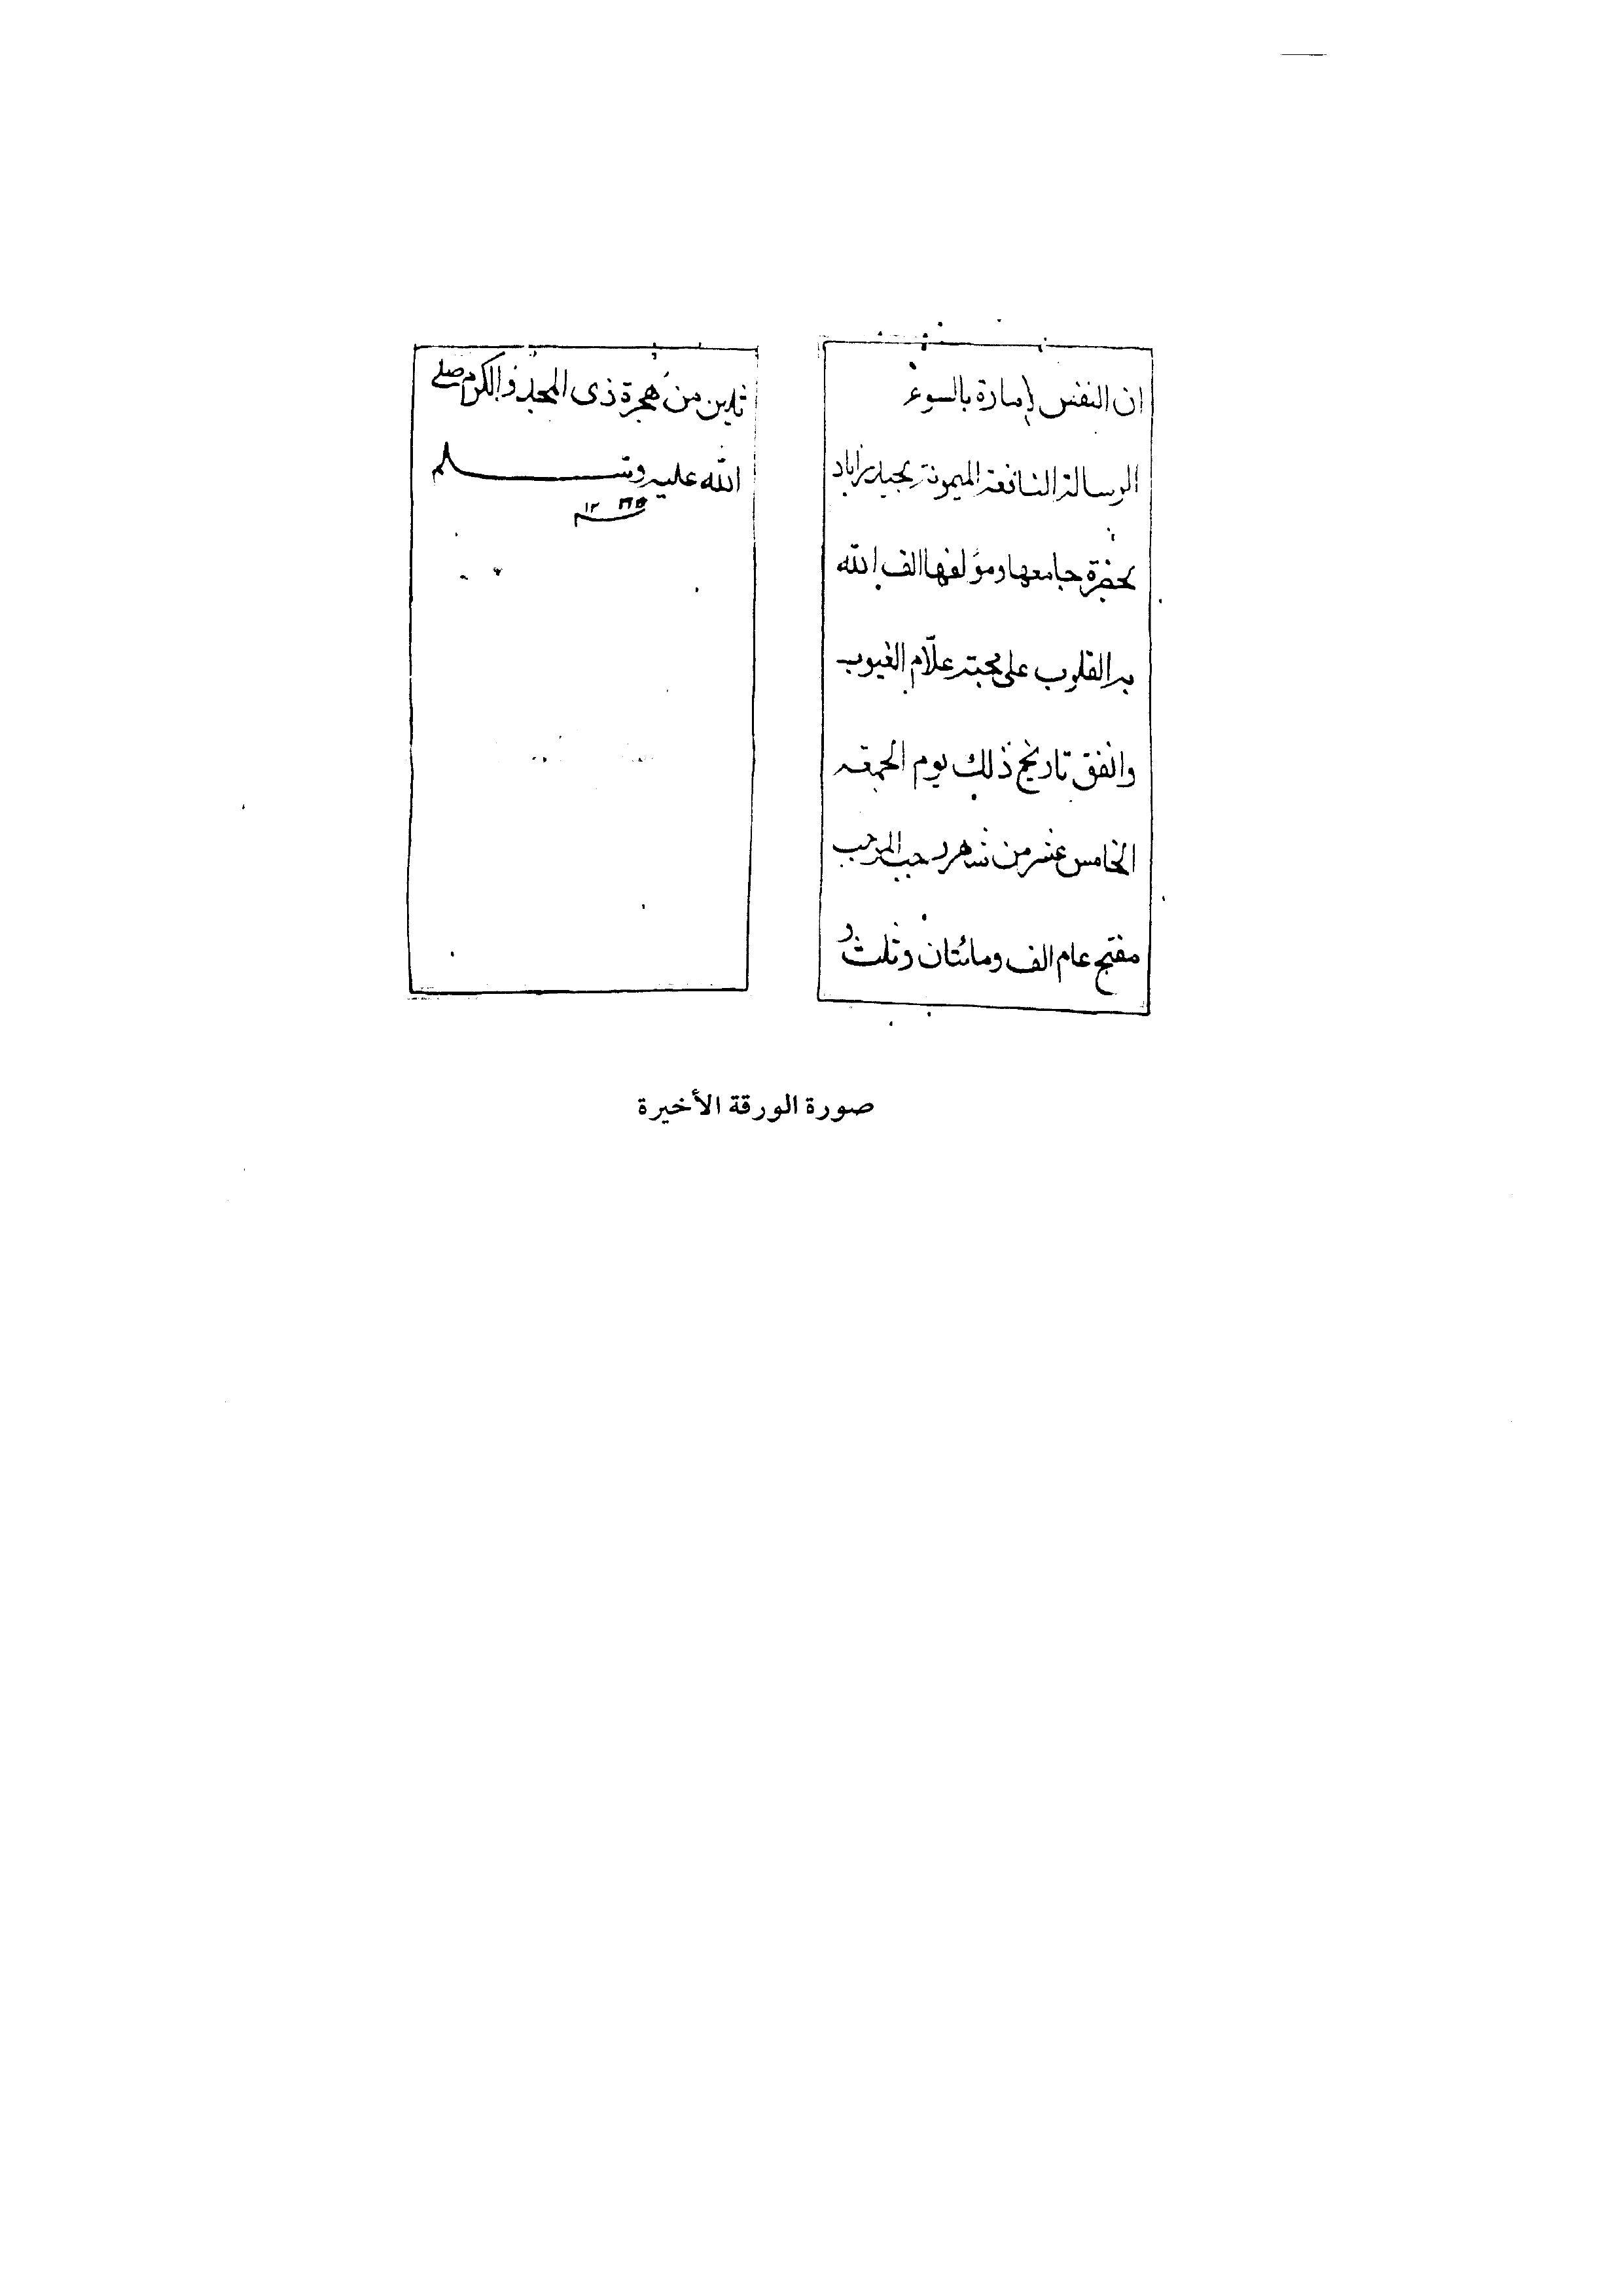 ان النفس لامارة بالسوء
الرسالة النافعة الميمونة بحيدراباد
بحضرة جامعها ومؤلفها الف الله
به القلوب على محبته علام الغيوب
واتفق تاريخ ذلك يوم الجمعه
الخامس عشر من شهر رجب المرجب
مفتح عام الف ومائتان وثلث و
ثلاثين من هجرة ذى المجد والكرم صلى
الله عليه وسلم
صورة الورقة الأخيرة